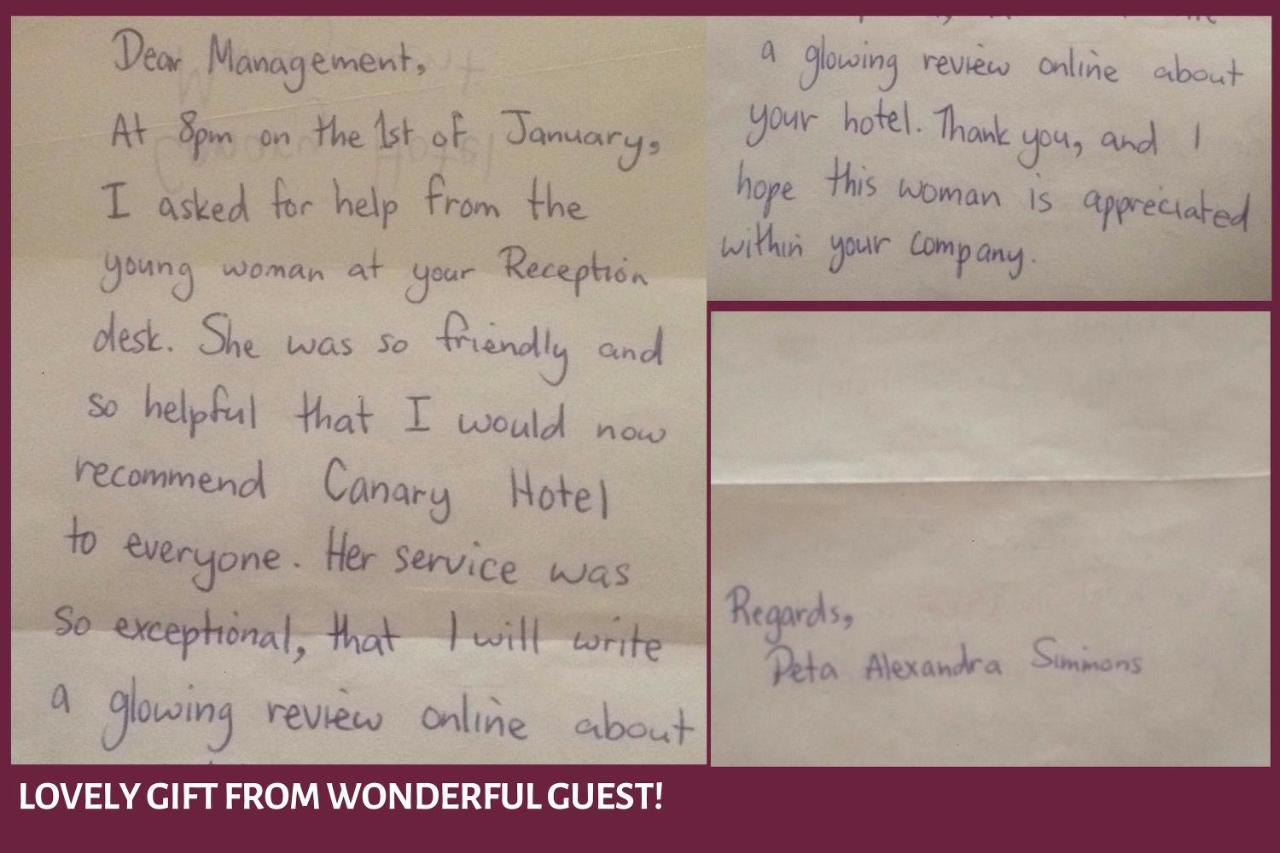 Dear Management,
At 8pm on the 1st of January,
I asked for help from the
young woman at your Reception
desk. She was so friendly and
so helpful that I would now
recommend Canary Hotel
to everyone. Her service was
so exceptional, that I will write
a glowing review online about
a glowing review online about
your hotel. Thank you, and I
hope this woman is appreciated
within your company.
Regards,
Peta Alexandra Simmons
LOVELY GIFT FROM WONDERFUL GUEST!